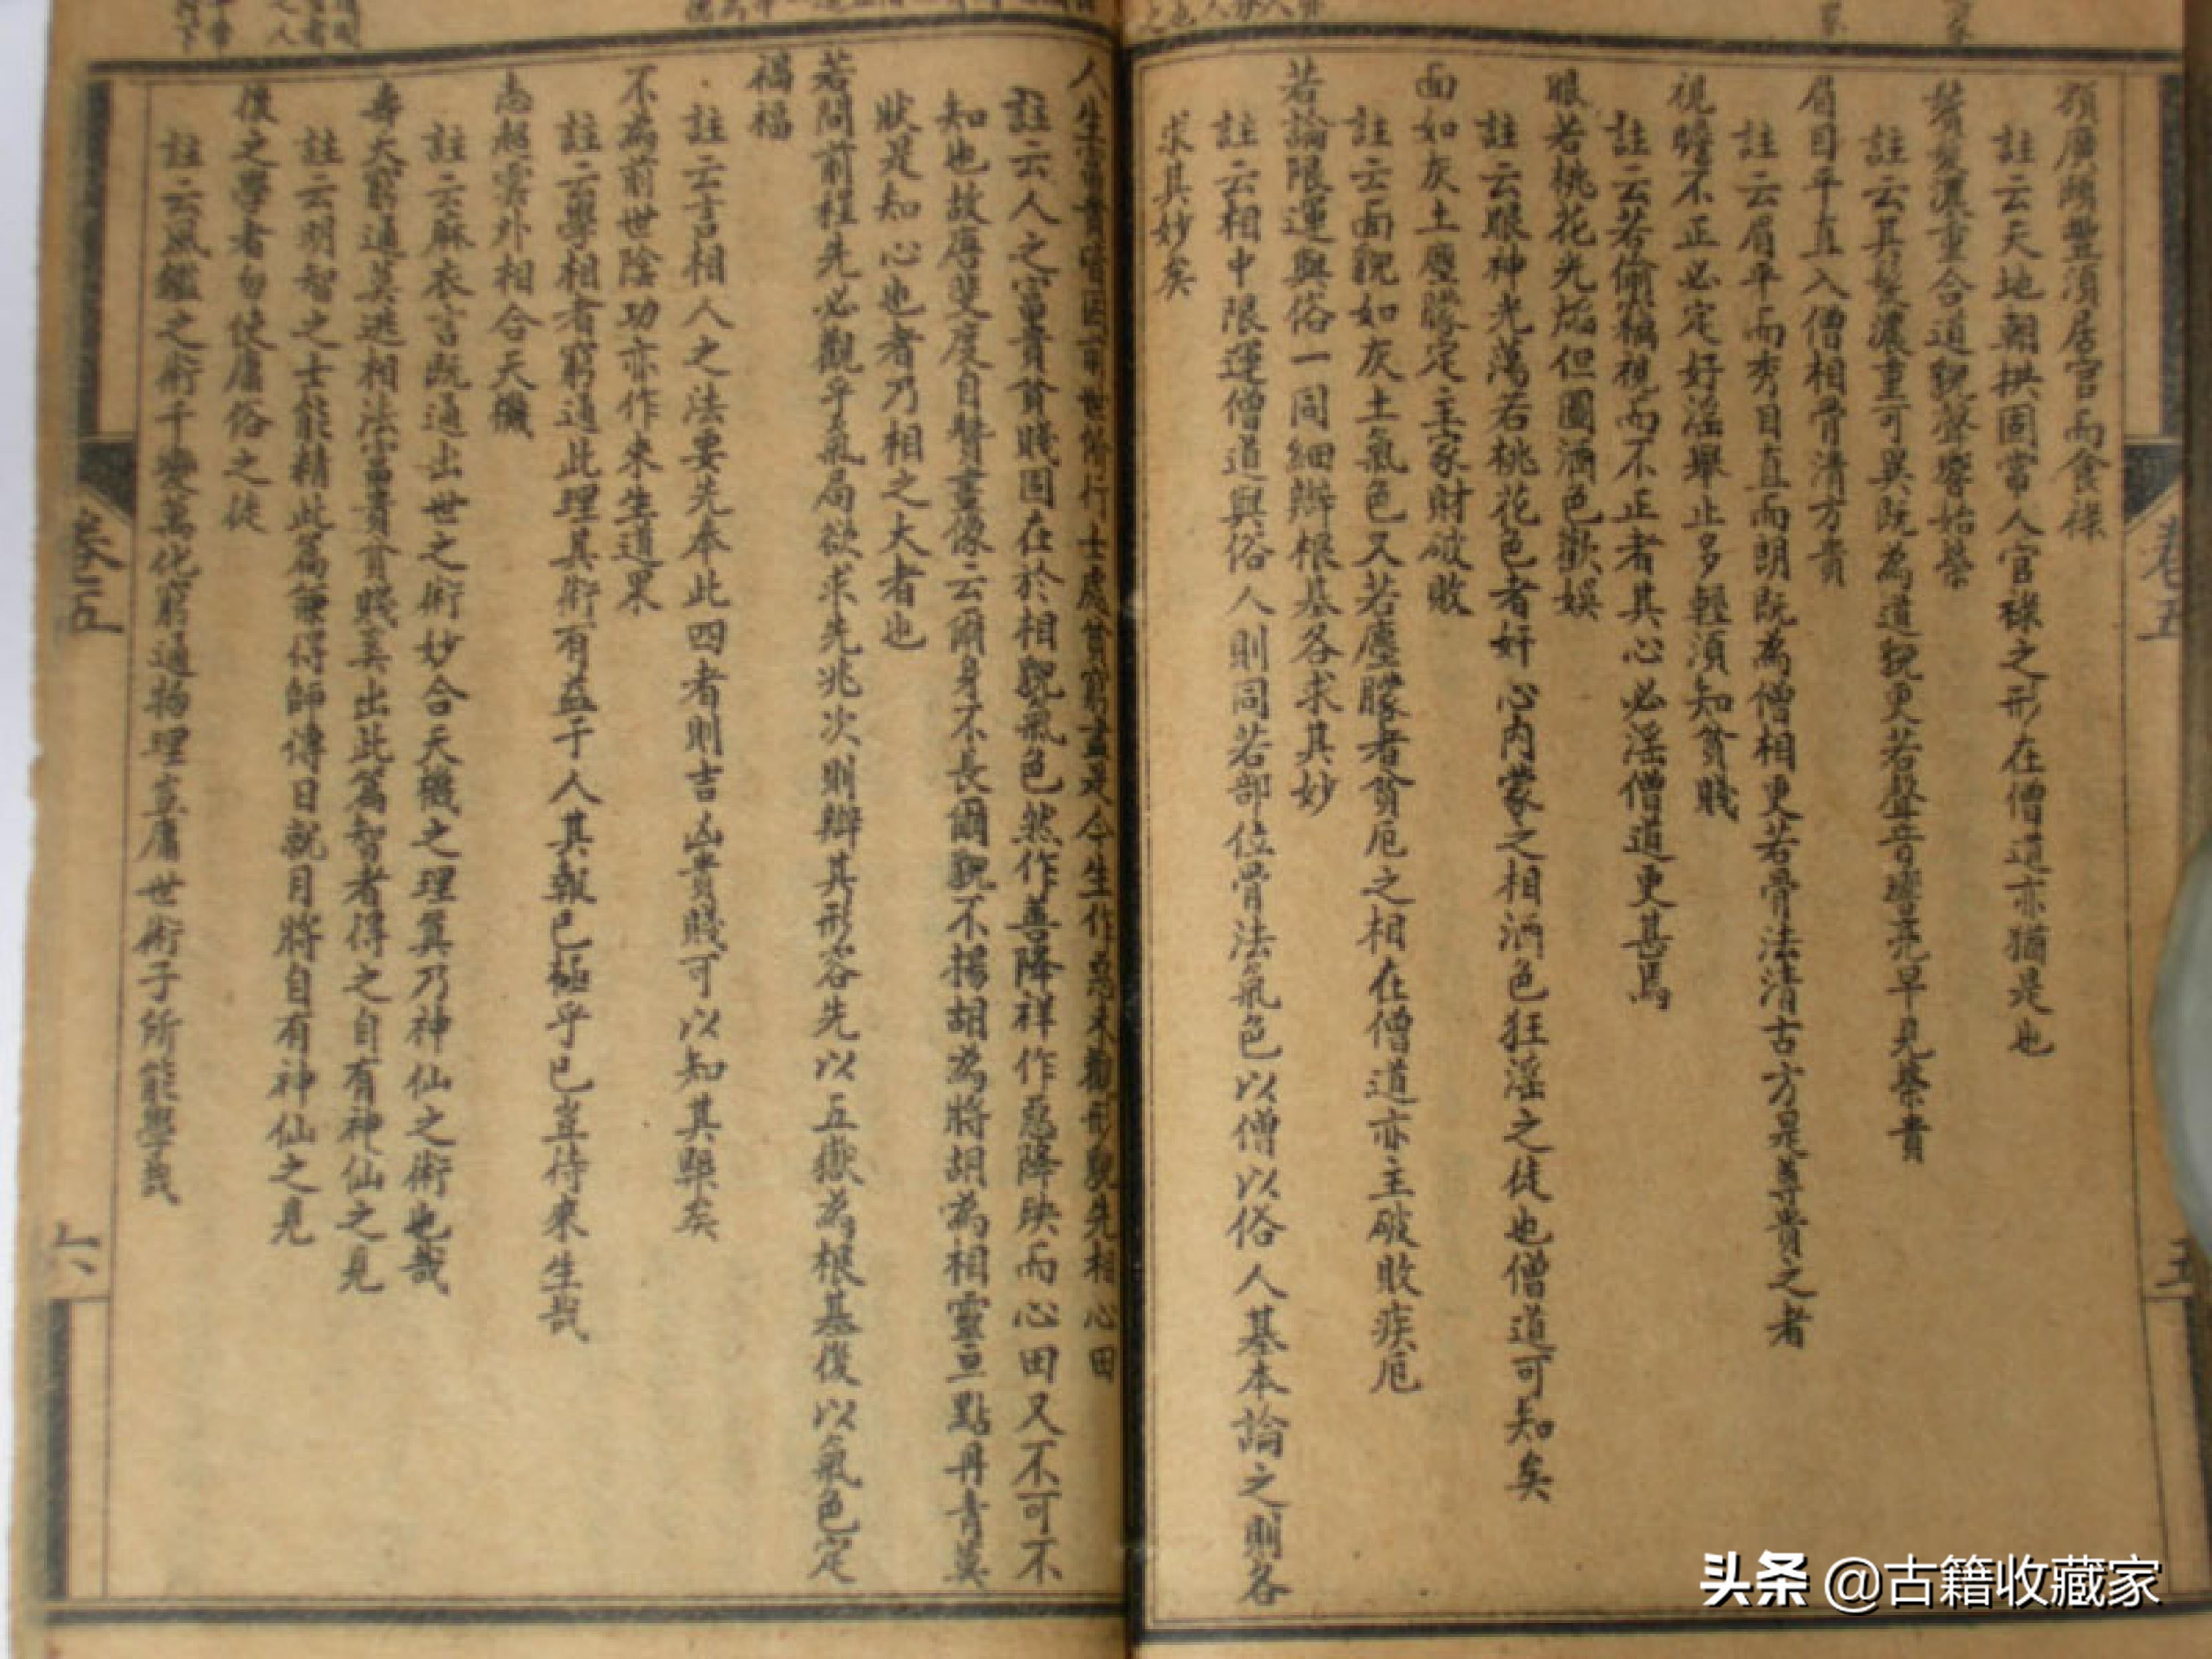 額廣頤豐須居官而食祿
註云天地朝拱固常人官祿之形在僧道亦猶是也
鬢髮濃重合道貌聲響始榮
註云其髮濃重可異既為道貌更若聲音響亮早見榮貴
眉目平直入僧相骨清方貴
註云眉平而秀目直而朗既為僧相更若骨法清古方是尊貴之者
視瞻不正必定好淫舉止多輕須知貧賤
註云若偷竊視而不正者其心必淫僧道更甚焉
眼若桃花光焰但圖酒色歡娛
註云眼神光蕩若桃花色者奸心內蒙之相酒色狂淫之徒也僧道可知矣
面如灰土塵朦定主家財破敗
註云面貌如灰土氣色又若塵朦者貧厄之相在僧道亦主破敗疾厄
若論限運與俗一同細辯根基各求其妙
註云相中限運僧道與俗人則同若部位骨法氣色以僧以俗人基本論之則各
求其妙矣
卷五
五
人生富貴皆因前世所行士處貧窮盡是今生作惡未觀形貌先相心田
註云人之富貴貧賤固在於相貌氣色然作善降祥作惡降殃而心田又不可不
知也故唐斐度自贊畫像云爾身不長爾貌不揚胡為將胡為相靈臺一點丹青莫
狀是知心也者乃相之大者也
若問前程先必觀乎氣局欲求先兆次則辯其形容先以五嶽為根基後以氣色定
禍福
註云言相人之法要先奉此四者則吉凶貴賤可以知其槩矣
不為前世陰功亦作來生道果
註云學相者窮通此理其術有益于人其報已極乎已豈待來生哉
志超雲外相合天機
註云麻衣言既通出世之術妙合天機之理算乃神仙之術也哉
壽夭窮通莫逃相法富貴貧賤奚出此篇智者得之自有神仙之見
註云明智之士能精此篇兼得師傳日就月將自有神仙之見
後之學者勿使庸俗之徒
註云風鑑之術千變萬化窮通物理豈庸世術子所能學哉
卷五
六
头条 @古籍收藏家